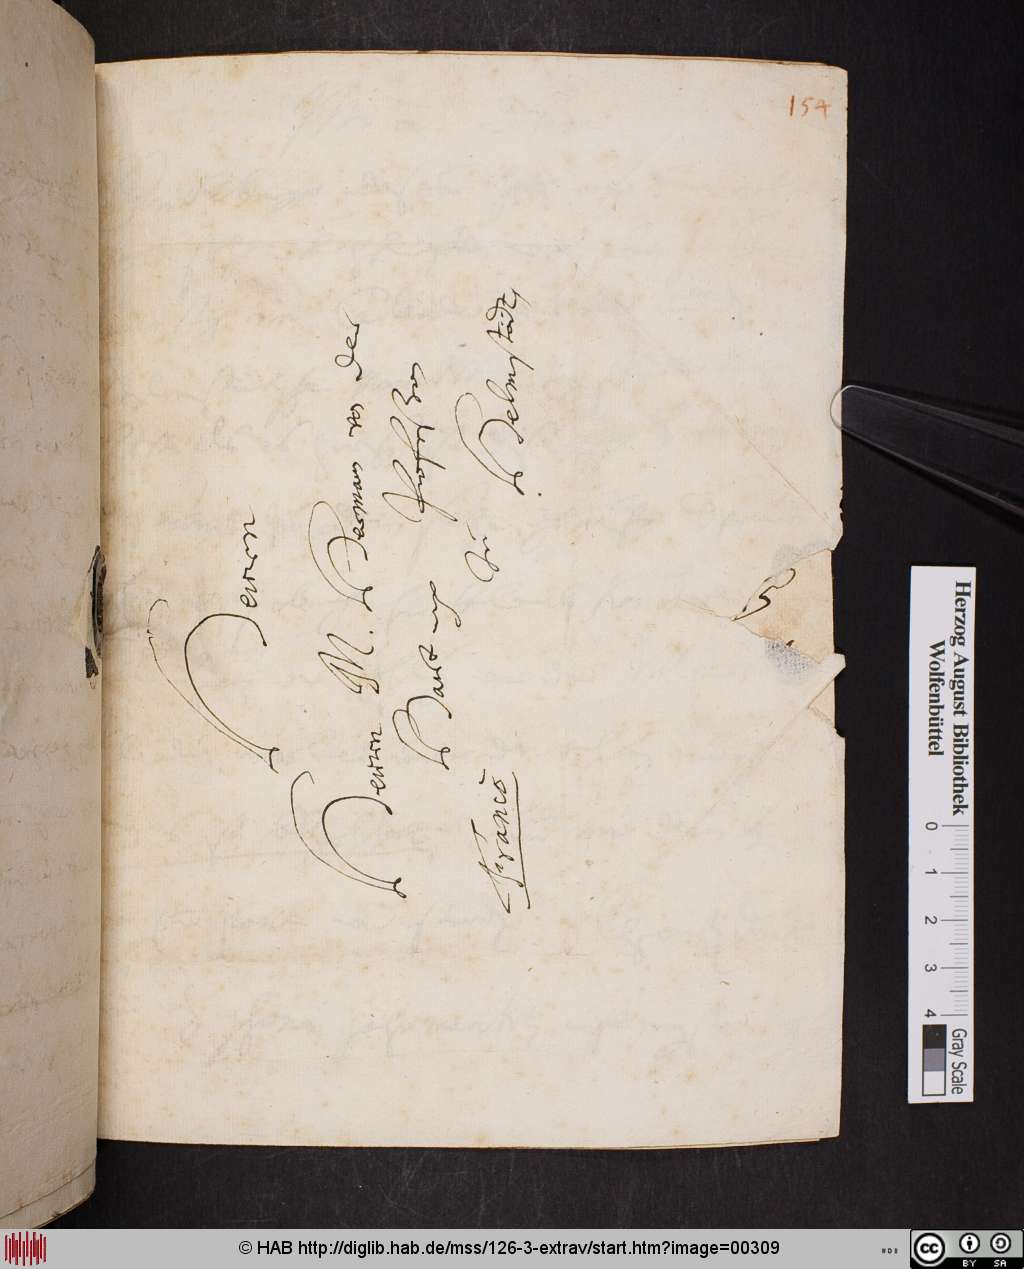 154
Herrn
Herrn M. Herman von der
Hardt Professor
zu Helmstädt,
Franco
Herzog August Bibliothek
Wolfenbüttel
0 1 2 3 4
Gray Scale
© HAB http://diglib.hab.de/mss/126-3-extrav/start.htm?image=00309
cc BY SA